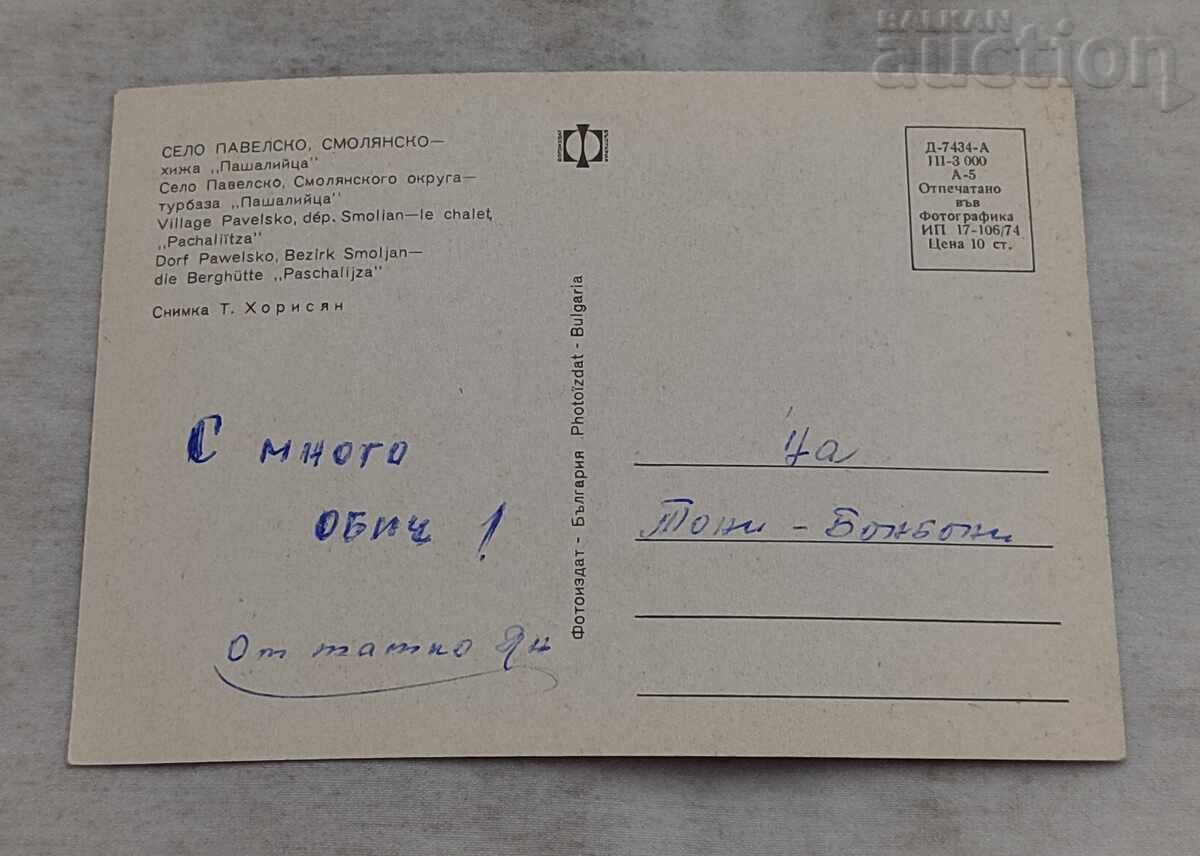 BALKAN
auction
СЕЛО ПАВЕЛСКО, СМОЛЯНСКО—
хижа „Пашалийца"
Село Павелско, Смолянского округа—
турбаза „Пашалийца"
Village Pavelsko, dép. Smolian—le chalet,
„Pachaliïtza"
Dorf Pawelsko, Bezirk Smoljan—
die Berghütte „Paschalijza"
Снимка Т. Хорисян
С много
обич!
От татко Ян
Фотоиздат - България Photoïzdat - Bulgaria
Д-7434-А
III-3 000
А-5
Отпечатано
във
Фотографика
ИП 17-106/74
Цена 10 ст.
На
Тони - Бонбони